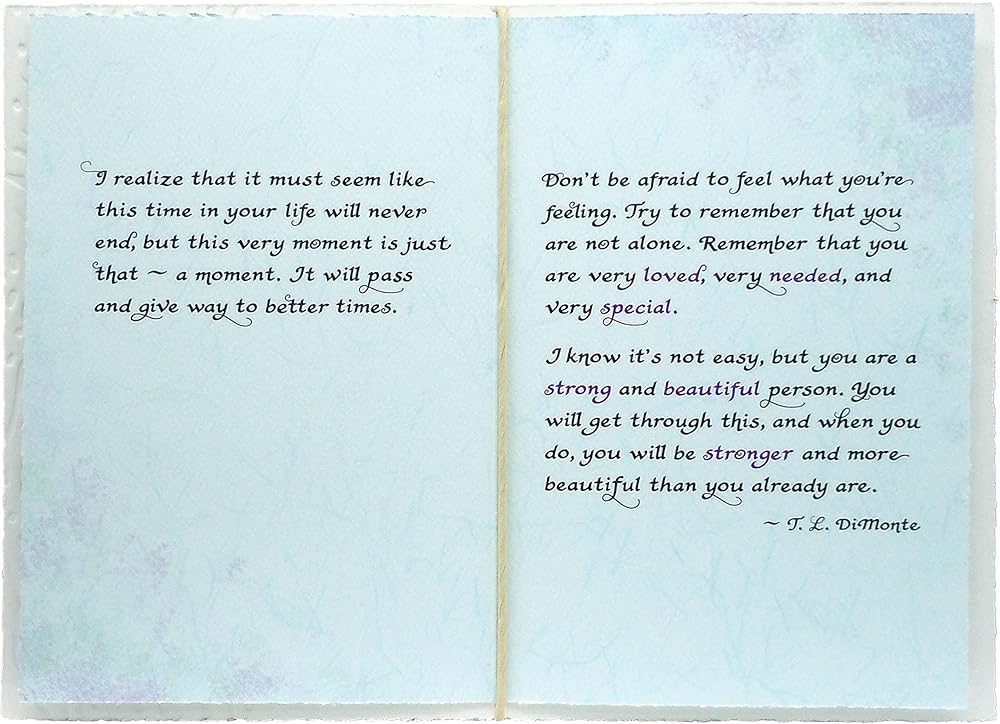 I realize that it must seem like
this time in your life will never
end, but this very moment is just
that ~ a moment. It will pass
and give way to better times.
Don't be afraid to feel what you're
feeling. Try to remember that you
are not alone. Remember that you
are very loved, very needed, and
very special.
I know it's not easy, but you are a
strong and beautiful person. You
will get through this, and when you
do, you will be stronger and more
beautiful than you already are.
~ T. L. DiMonte